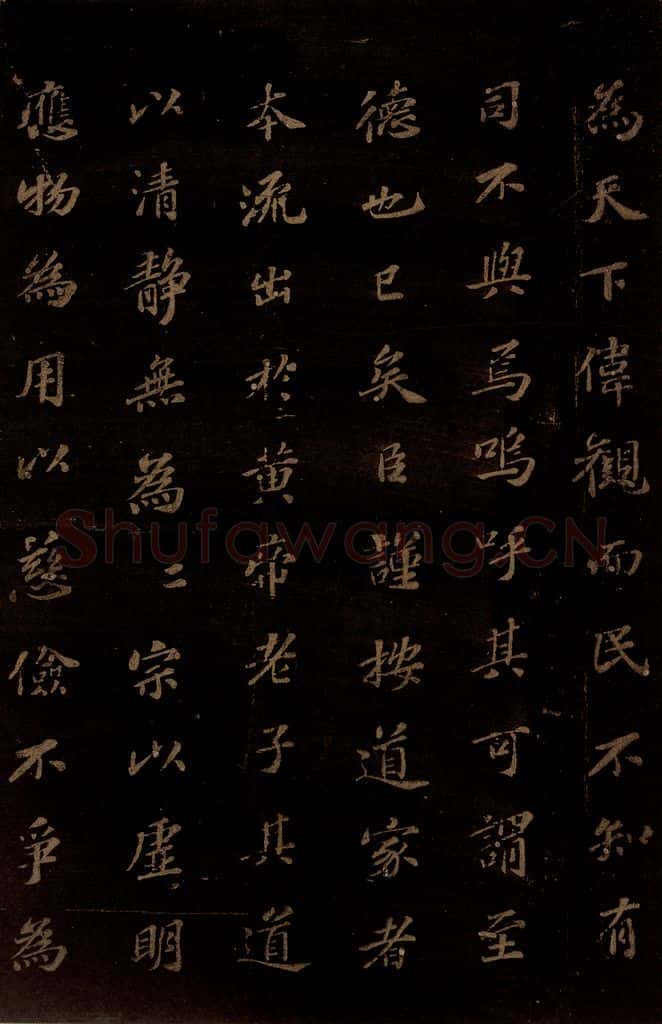 為天下偉觀而民不知有
司不與焉嗚呼其可謂至
德也已矣臣謹按道家者
本流出於黃帝老子其道
以清靜無為〻宗以虛明
應物為用以慈儉不爭為
Shufawang.CN